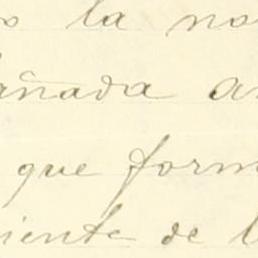 o la no
añada a
que form
iente de l